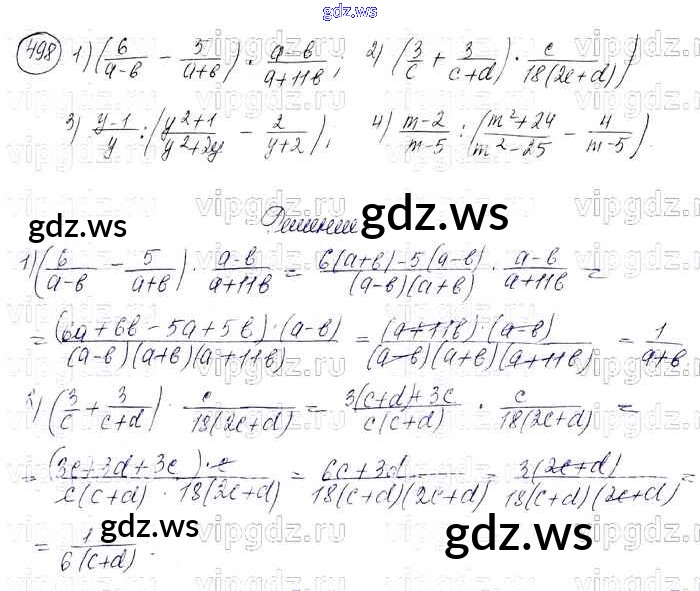 gdz.ws
498 1) (6/(a-b) - 5/(a+b)) · (a-b)/(a+11b); 2) (3/c + 3/(c+d)) · c/(18(2c+d));
3) (y-1)/y : ((y²+1)/(y²+2y) - 2/(y+2)); 4) (m-2)/(m-5) : ((m²+24)/(m²-25) - 4/(m-5)).
Решение
1) (6/(a-b) - 5/(a+b)) · (a-b)/(a+11b) = (6(a+b)-5(a-b))/((a-b)(a+b)) · (a-b)/(a+11b) =
= ((6a+6b-5a+5b)·(a-b))/((a-b)(a+b)(a+11b)) = ((a+11b)·(a-b))/((a-b)(a+b)(a+11b)) = 1/(a+b)
) (3/c + 3/(c+d)) · c/(18(2c+d)) = (3(c+d)+3c)/(c(c+d)) · c/(18(2c+d)) =
= ((3c+3d+3c)·c)/(c(c+d)·18(2c+d)) = (6c+3d)/(18(c+d)(2c+d)) = (3(2c+d))/(18(c+d)(2c+d)) =
= 1/(6(c+d)).
gdz.ws
gdz.ws
gdz.ws
gdz.ws
vipgdz.ws